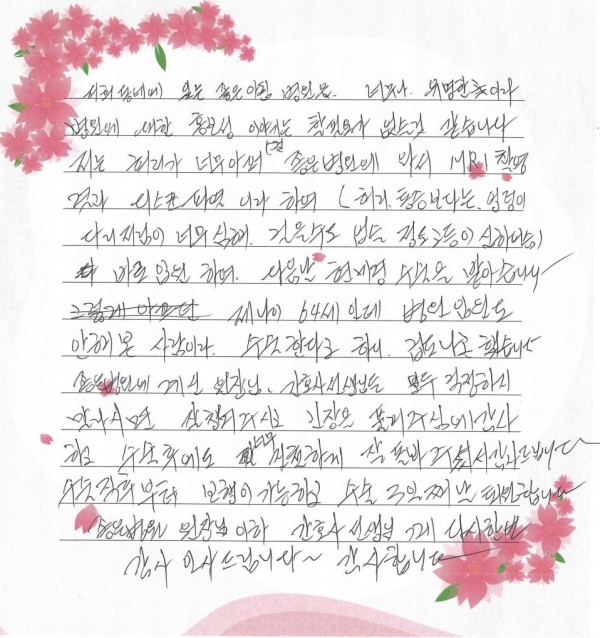 저희 동네에 있는 좋은아침 병원은 너무나 유명한 곳이라
병원에 대한 홍보성 이야기는 할 필요가 없는것 같습니다
저는 허리가 너무 아퍼 좋은병원에 와서 MRI 촬영
결과 디스크 파열 이라 하여 (허리 통증보다는, 엉덩이
다리저림이 너무 심해. 걸을수도 없는 정도 통증이 심하여)
바로 입원 하여. 다음날 현미경 수술을 받았습니다
제나이 64세 인데 병원 입원도
안해본 사람이라. 수술한다고 하니. 겁도나고 했습니다
좋은병원에 계신 원장님. 간호사선생님들 모두 걱정하지
말라시면 친절히 긴장을 풀러주심에 감사
하고 수술후에도 너무 친절하게 잘 돌봐 주셔서 감사드립니다
수술직후부터 보행이 가능하고 수술 3일째 날 퇴원합니다
좋은병원 원장님 이하 간호사 선생님 께 다시한번
감사 인사드립니다~ 감사합니다